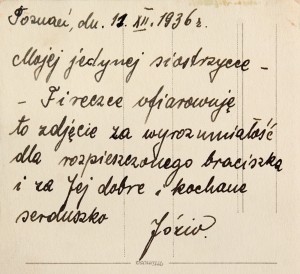 Poznań, dn. 11 XII. 1936 r.
Mojej jedynej siostrzyce -
- Fireczce ofiarowuję
to zdjęcie za wyrozumiałość
dla rozpieszczonego braciszka
i za Jej dobre i kochane
serduszko
Józio.